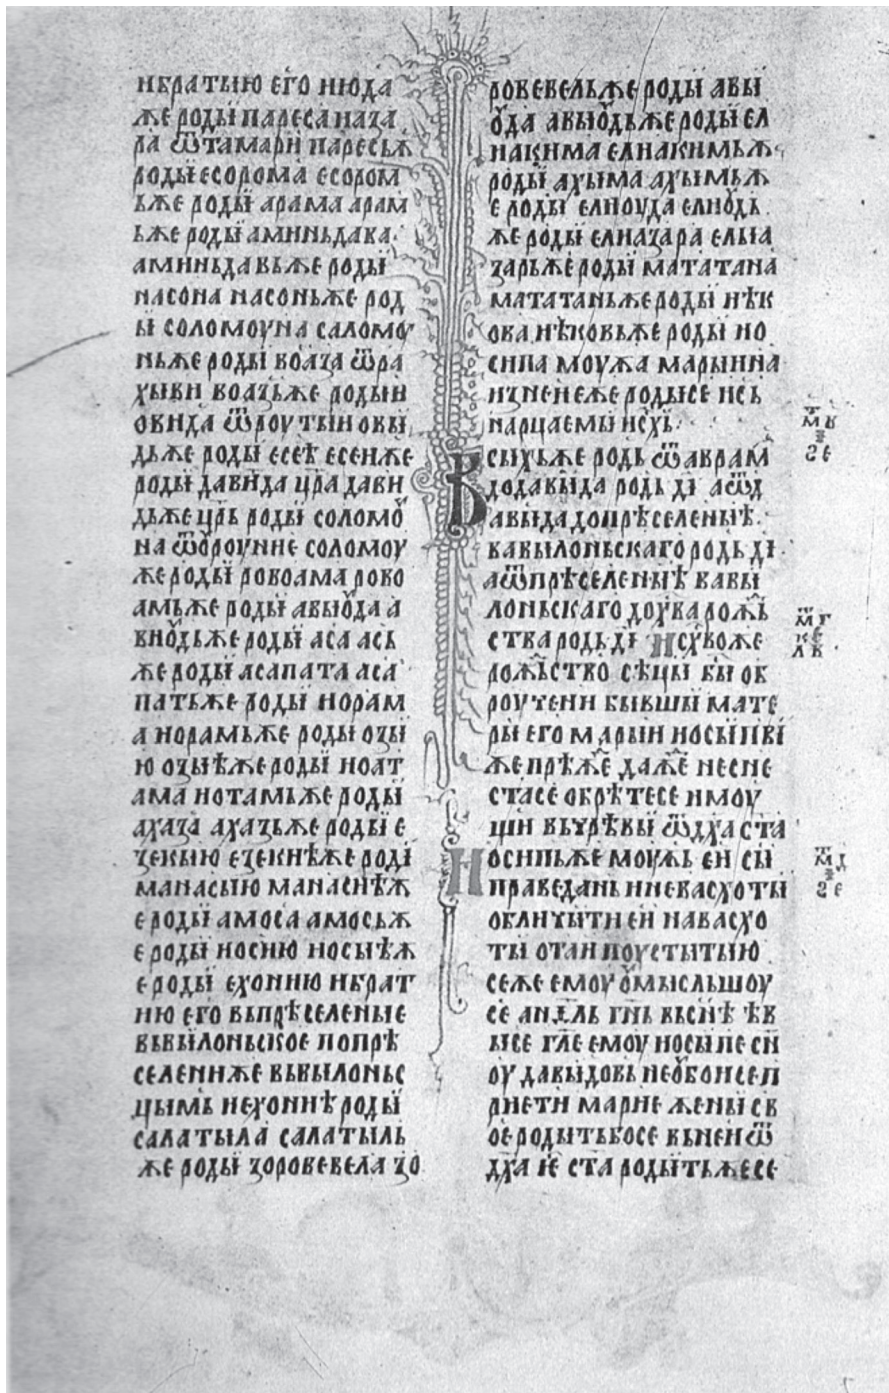 ибратию его июда
же роди пареса иаза
ра ѿтамари паресьж
роди есорома есором
ьже роди арама арам
ьже роди аминьдава
аминьдавьже роди
насона насоньже род
и соломоуна саломо
ньже роди вѡаза ѿра
хыви воазьже родии
овида ѿроутыи овы
дьже роди есеѣ есеиже
роди давида цр҃а дави
дьже цр҃ь роди соломо
на ѿѹроуиие соломоу
же роди ровоама рово
амьже роди авыѹда а
виѹдьже роди аса ась
же роди асапата аса
патьже роди иорам
а иорамьже роди озы
ю озыѣже роди иоат
ама иотамьже роди
ахаза ахазьже роди е
зекыю езекиѣже роді
манасыю манасиѣж
е роди амоса амосьж
е роди иосию иосыѣж
е роди ехонию ибрат
ию его вьпрѣселеные
вьвылоньское попрѣ
селениже вьвылоньс
цымь иехониѣ роди
салатыла салатыль
же роди зоровевела зо
ровевельже роди авы
ѹда авыѹдьже роди ел
иакима елиакимьж
роди ахыма ахымьж
е роди елиоуда елиѹдь
же роди елиазара елыа
зарьже роди мататана
мататаньже роди иѣк
ова иѣковьже роди ио
сипа моужа марыина
изнеиеже родысе ись
нарцаемы исх҃ь
Всыхьже родь ѿаврам
додавыда родь ді аѿд
авыдадопрѣселеныѣ
вавылоньскаго родь ді
аѿпрѣселеныѣ вавы
лоньскаго дохва рожь
ства родь ді Исх҃воже
рожьство сѣцы бы об
роучени бывшы мате
ры его марыи иосыпвї
же прѣже даже несне
стасе обрѣтесе имоу
щи вьурѣвы ѿдх҃а ста
Иосипьже моужь еи сы
праведань иневасхоты
обличыти еи навасхо
ты отаи поустытыю
сеже емоу ѹмысльшоу
се анг҃ль гн҃ь вьснѣ ѣв
ысе гл҃е емоу иосыпе сн
оу давыдовь неѹбоисеп
риети марие жены св
ое родытьбосе вьнеи ѿ
дх҃а іе ста родытьжесе